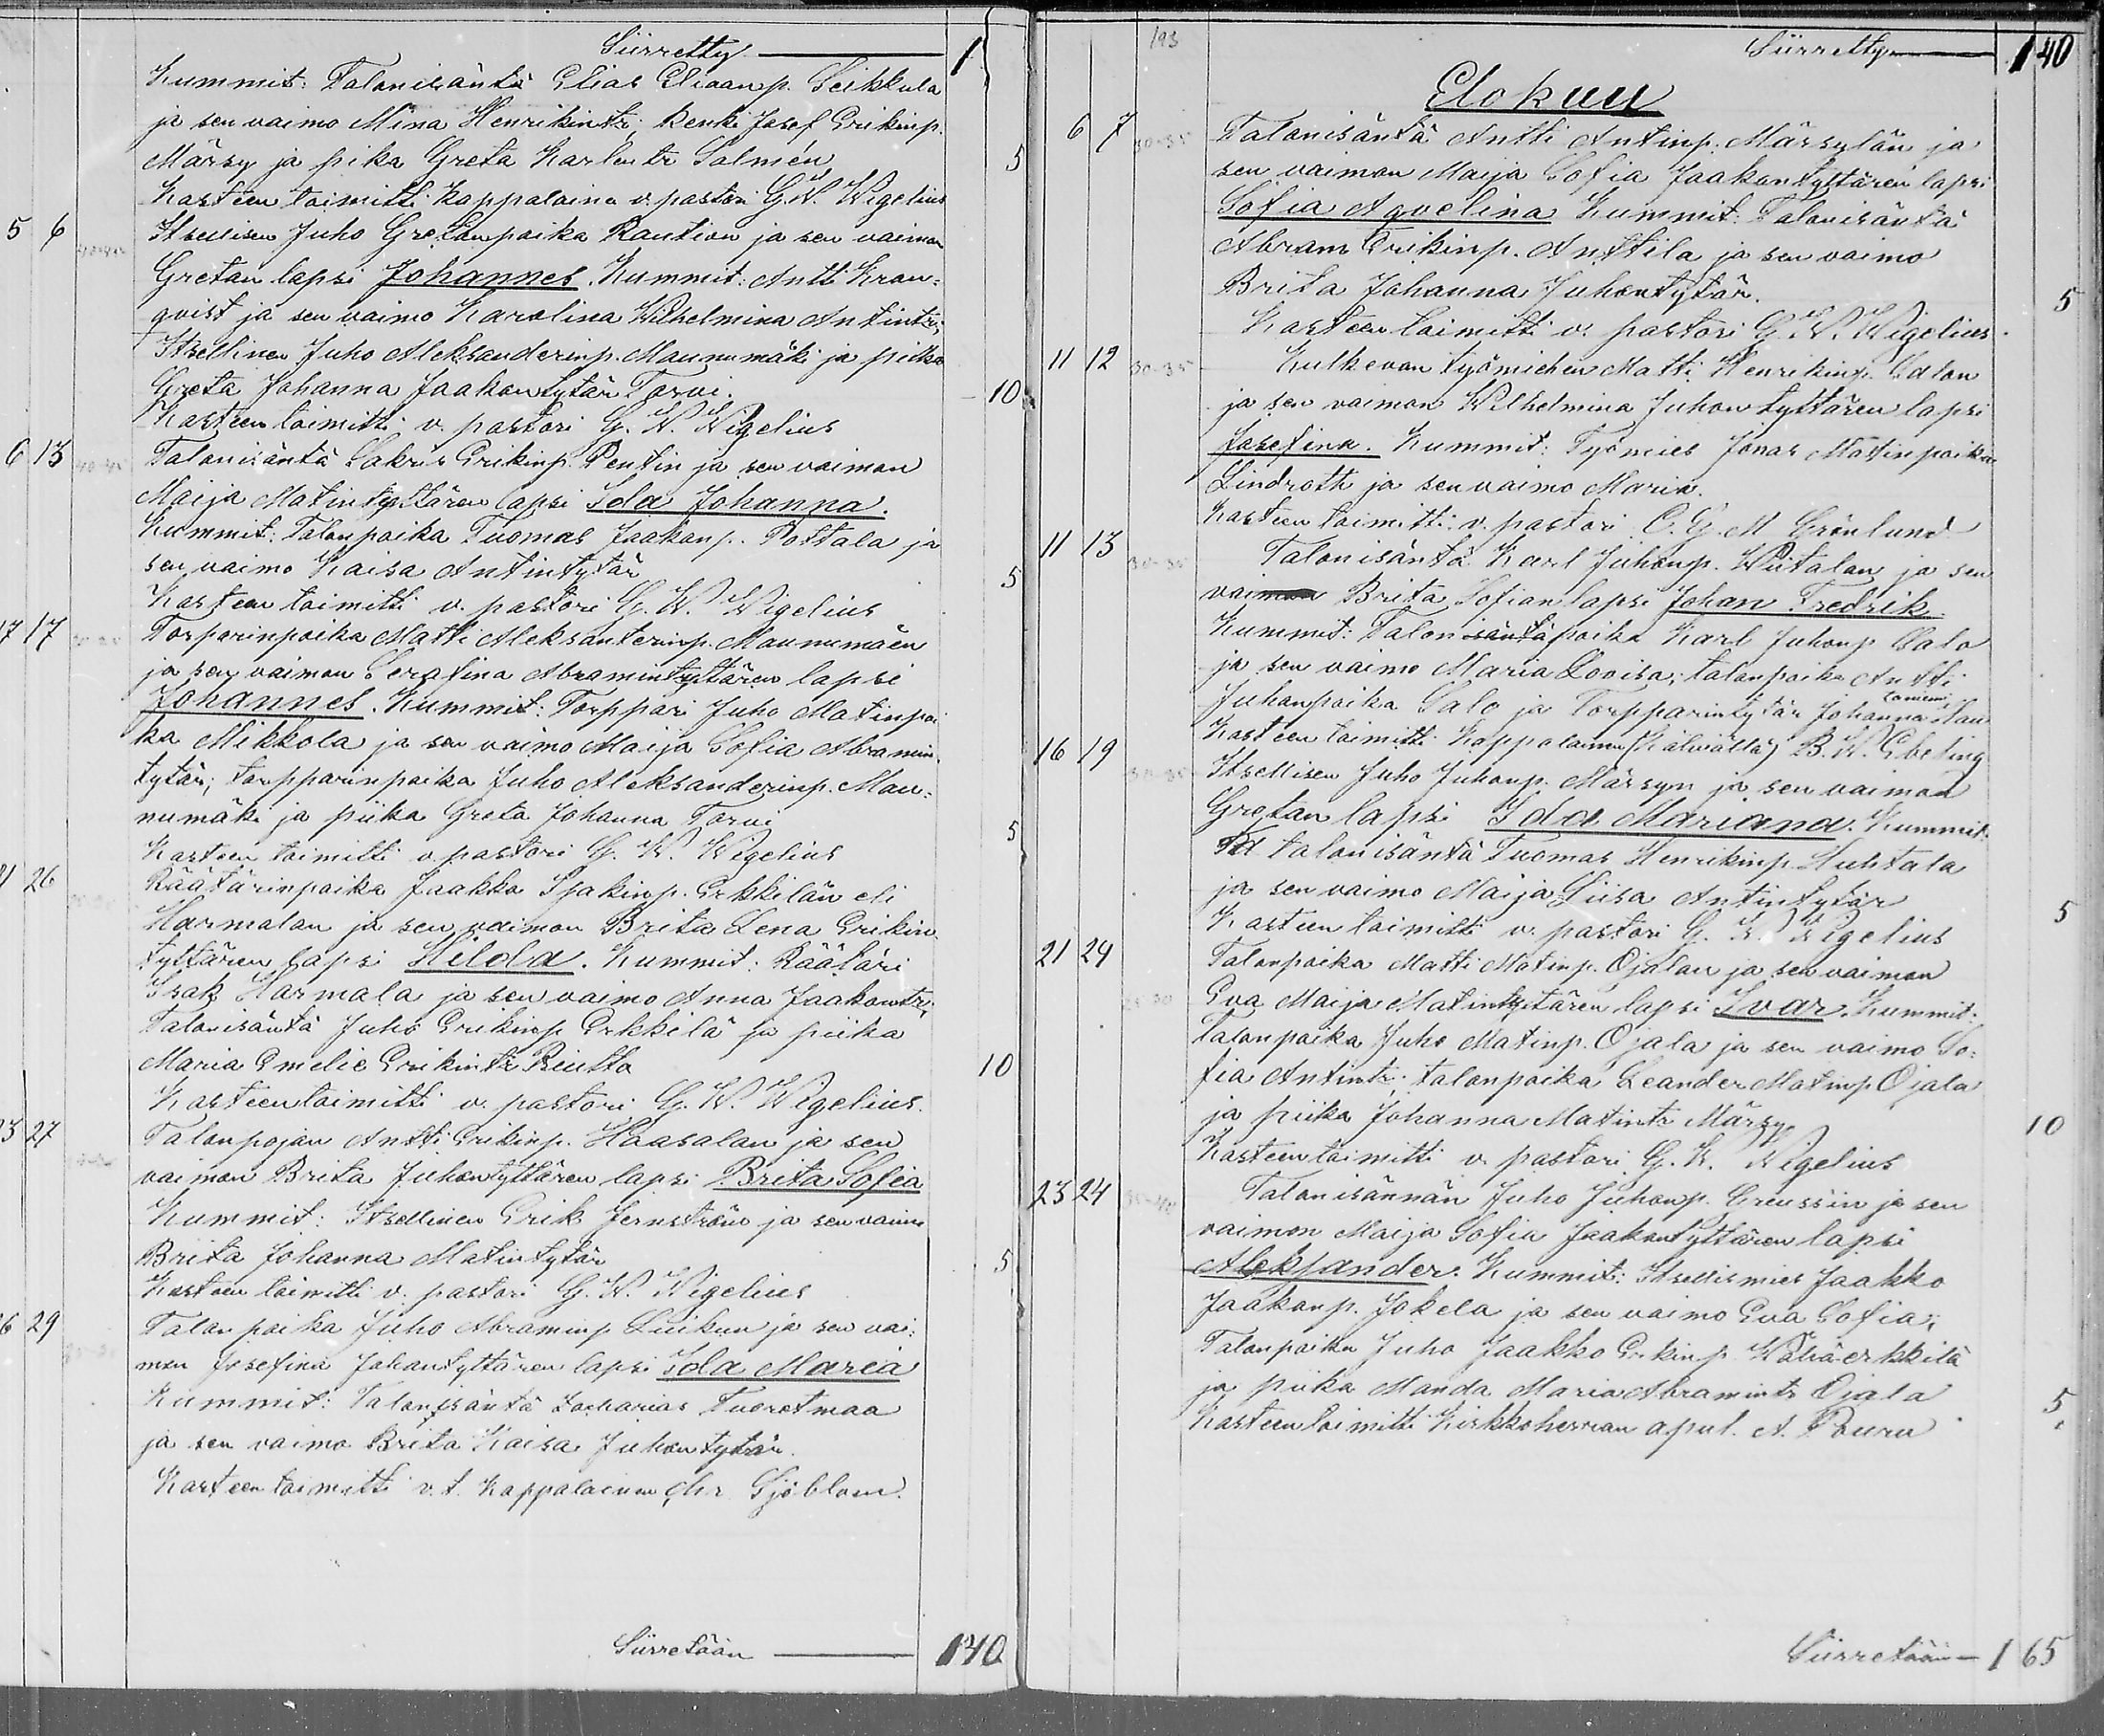 Siirretty 1
Kummit: Talonisäntä Elias Eliaanp. Seikkula
ja sen vaimo Mina Henrikintr, Renki Josef Erikinp.
Märsy ja pika Greta Karlentr Salmén 5
Kasteen toimitti kappalainen v. pastori G. W. Wigelius
5 6 Itsellisen Juho Gretanpoika Raution ja sen vaimon
Gretan lapsi Johannes. Kummit: Antti Kran=
qvist ja sen vaimo Karolina Wilhelmina Antintr;
Itsellinen Juho Aleksanderinp. Maunumäki ja piika
Greta Johanna Jaakontytär Torvi. 10
Kasteen toimitti v. pastori G. W. Wigelius
6 13 Talonisäntä Sakris Erikinp. Pentin ja sen vaimon
Maija Matintyttären lapsi Ida Johanna.
Kummit: Talonpoika Tuomas Jaakonp. Tottala ja
sen vaimo Kaisa Antintytär 5
Kasteen toimitti v. pastori G. W. Wigelius
17 17 Torparinpoika Matti Aleksanterinp. Maunumäen
ja sen vaimon Serafina Abramintyttären lapsi
Johannes. Kummit: Torppari Juho Matinpoi
ka Mikkola ja sen vaimo Maija Sofia Abramin
tytär; torpparinpoika Juho Aleksanderinp. Mau=
numäki ja piika Greta Johanna Torvi 5
Kasteen toimitti v. pastori G. W. Wigelius
21 26 Räätärinpoika Jaakko Isakinp. Erkkilän eli
Harmalan ja sen vaimon Brita Lena Erikin
tyttären lapsi Hilda. Kummit: Räätäri
Isak Harmala ja sen vaimo Anna Jaakontr;
Talonisäntä Juho Erikinp Erkkilä ja piika
Maria Emelie Erikintr Riutta 10
Kasteen toimitti v. pastori G. W. Wigelius.
23 27 Talonpojan Antti Erikinp. Haasalan ja sen
vaimon Brita Juhontyttären lapsi Brita Sofia
Kummit: Itsellinen Erik Jernström ja sen vaimo
Brita Johanna Matintytär 5
Kasteen toimitti v. pastori G. W. Wigelius
26 29 Talonpoika Juho Abraminp Luikun ja sen vai=
mon Josefina Johantyttären lapsi Ida Maria
Kummit: Talonisäntä Zacharias Tuoretmaa
ja sen vaimo Brita Kaisa Juhontytär.
Kasteen toimitti v.t. Kappalainen Chr Sjöblom.
Siirretään 140
193 Siirretty 140
Elokuu
6 7 30-35 Talonisäntä Antti Antinp. Märsylän ja
sen vaimon Maija Sofia Jaakontyttären lapsi
Sofia Aqvelina Kummit: Talonisäntä
Abram Erikinp. Anttila ja sen vaimo
Brita Johanna Juhontytär. 5
Kasteen toimitti v. pastori G. W. Wigelius.
11 12 30-35 Kulkevan työmiehen Matti Henrikinp. Salon
ja sen vaimon Wilhelmina Juhontyttären lapsi
Josefina. Kummit: Työmies Jonas Matinpoika
Lindroth ja sen vaimo Maria.
Kasteen toimitti v. pastori C. G. M Grönlund
11 13 30-35 Talonisäntä Karl Juhonp. Wiitalan ja sen
vaimon Brita Sofian lapsi Johan Fredrik
Kummit: Talonisäntäpoika Karl Juhonp Salo
ja sen vaimo Maria Lovisa; talonpoika Antti
Juhonpoika Salo ja Torpparintytär Johanna Lau
Kasteen toimitti Kappalainen (Kälviällä) B. W. Ebeling
16 19 30-35 Itsellisen Juho Juhonp. Märsyn ja sen vaimon
Gretan lapsi Ida Mariana. Kummit:
talonisäntä Tuomas Henrikinp. Huhtala
ja sen vaimo Maija Liisa Antintytär 5
Kasteen toimitti v. pastori G. W. Wigelius
21 24 25-30 Talonpoika Matti Matinp. Ojalan ja sen vaimon
Eva Maija Matintyttären lapsi Ivar. Kummit:
Talonpoika Juho Matinp. Ojala ja sen vaimo So=
fia Antintr; talonpoika Leander Matinp Ojala
ja piika Johanna Matintr Märsy 10
Kasteen toimitti v. pastori G. W. Wigelius
23 24 Talonisännän Juho Juhonp. Greussin ja sen
vaimon Maija Sofia Jaakontyttären lapsi
Aleksander. Kummit: Itsellismies Jaakko
Jaakonp. Jokela ja sen vaimo Eva Sofia;
Talonpoika Juho Jaakko Erkinp Wähäerkkilä
ja piika Manda Maria Abramintr Ojala 5
Kasteen toimitti Kirkkoherran apul. A. Pouru
Siirretään 165